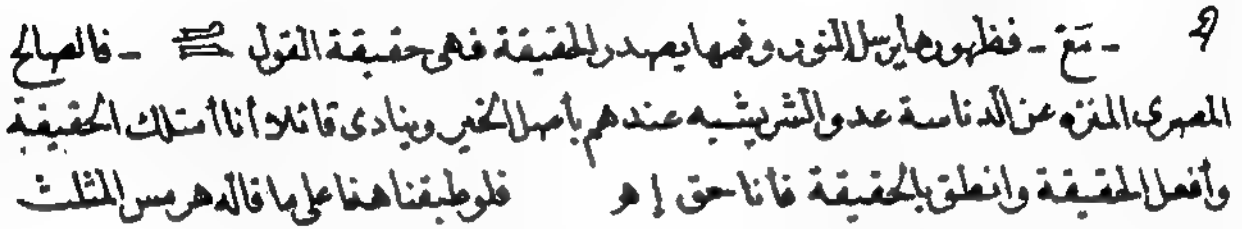 - مَعْ - فظهورها يرسل النور وفمها يصدر الحقيقة فهى حقيقة القول - فالصالح
المصرى المنزه عن الدناسة عدو الشر يشبه عندهم بأصل الخير وينادى قائلا أنا أمتلك الحقيقة
وأفعل الحقيقة وانطق بالحقيقة فانا حق إ هر فلو طبقنا هذا على ما قاله هرمس المثلث